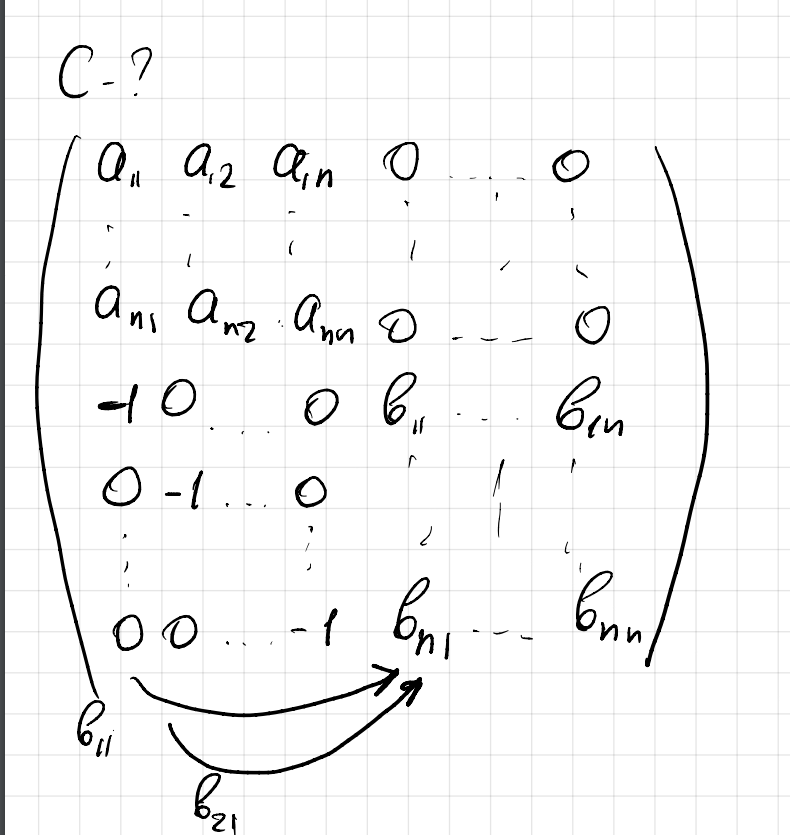 C-?
a₁₁ a₁₂ a₁ₙ 0 ..... 0
aₙ₁ aₙ₂ . aₙₙ 0 --- 0
-1 0 .... 0 b₁₁ ... b₁ₙ
0 -1 ... 0
0 0 ... -1 bₙ₁ --- bₙₙ
b₁₁
b₂₁